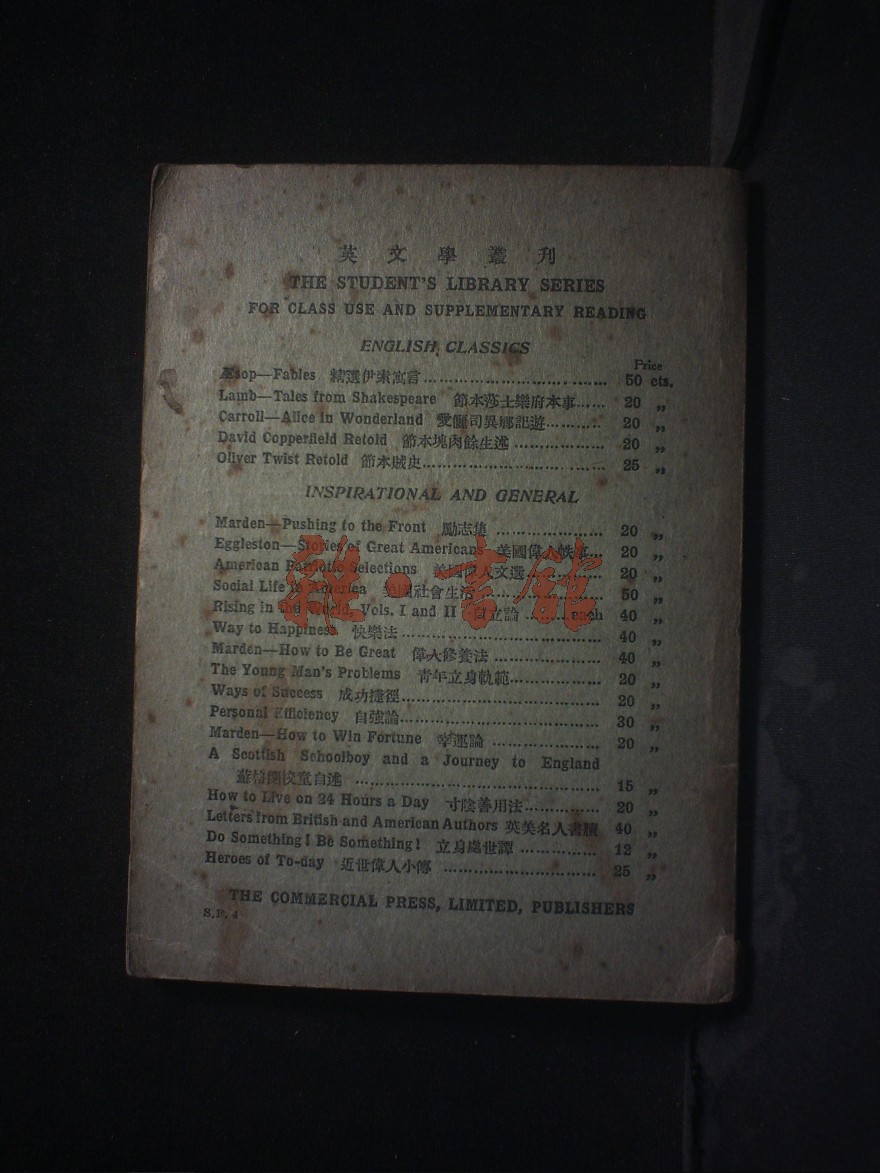 英文學叢刊
THE STUDENT'S LIBRARY SERIES
FOR CLASS USE AND SUPPLEMENTARY READING
ENGLISH CLASSICS
Price
Æsop—Fables 精選伊索寓言 50 cts.
Lamb—Tales from Shakespeare 節本莎士樂府本事...... 20 „
Carroll—Alice in Wonderland 愛儷司異鄉記遊........... 20 „
David Copperfield Retold 節本塊肉餘生述 .................. 20 „
Oliver Twist Retold 節本賊史.................................... 25 „
INSPIRATIONAL AND GENERAL
Marden—Pushing to the Front 勵志集 ..................... 20 „
Eggleston—Stories of Great Americans 美國偉人軼事... 20 „
American Patriotic Selections 美國 人文選............... 20 „
Social Life in America 美國社會生活........................ 50 „
Rising in the World, Vols. I and II 自立論 .........each 40 „
Way to Happiness 快樂法....................................... 40 „
Marden—How to Be Great 偉人修養法 ..................... 40 „
The Young Man's Problems 青年立身軌範.................. 20 „
Ways of Success 成功捷徑....................................... 20 „
Personal Efficiency 自強論....................................... 30 „
Marden—How to Win Fortune 幸運論 ..................... 20 „
A Scottish Schoolboy and a Journey to England
蘇格蘭校童自述 ................................................ 15 „
How to Live on 24 Hours a Day 寸陰善用法............... 20 „
Letters from British and American Authors 英美名人書牘 40 „
Do Something! Be Something! 立身處世譚 ............... 12 „
Heroes of To-day 近世偉人小傳 .............................. 25 „
THE COMMERCIAL PRESS, LIMITED, PUBLISHERS
S.P. 4
雜·書館